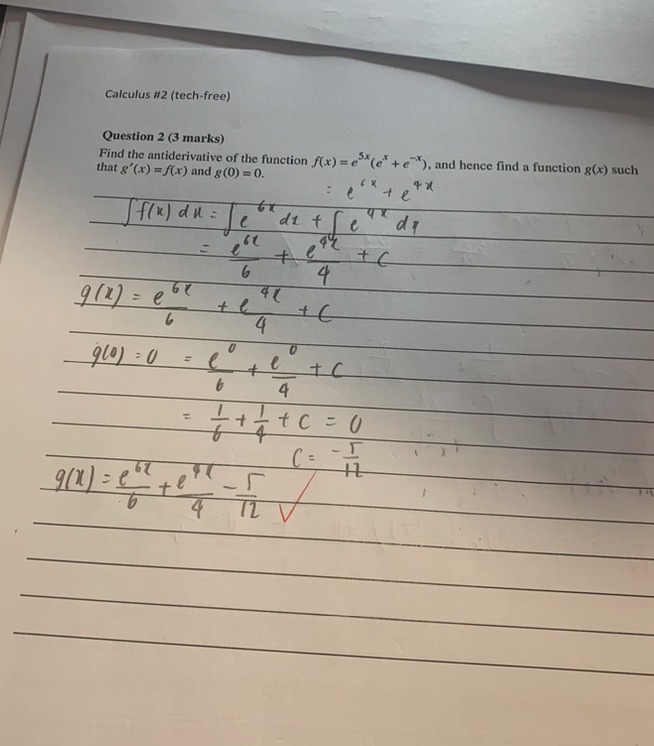 Calculus #2 (tech-free)
Question 2 (3 marks)
Find the antiderivative of the function f(x) = e^{5x}(e^{x} + e^{-x}), and hence find a function g(x) such
that g′(x) = f(x) and g(0) = 0.
= e^{6x} + e^{4x}
∫f(x) dx = ∫e^{6x} dx + ∫e^{4x} dx
= e^{6x}/6 + e^{4x}/4 + C
g(x) = e^{6x}/6 + e^{4x}/4 + C
g(0) = 0 = e^{0}/6 + e^{0}/4 + C
= 1/6 + 1/4 + C = 0
C = -5/12
g(x) = e^{6x}/6 + e^{4x}/4 - 5/12 ✓